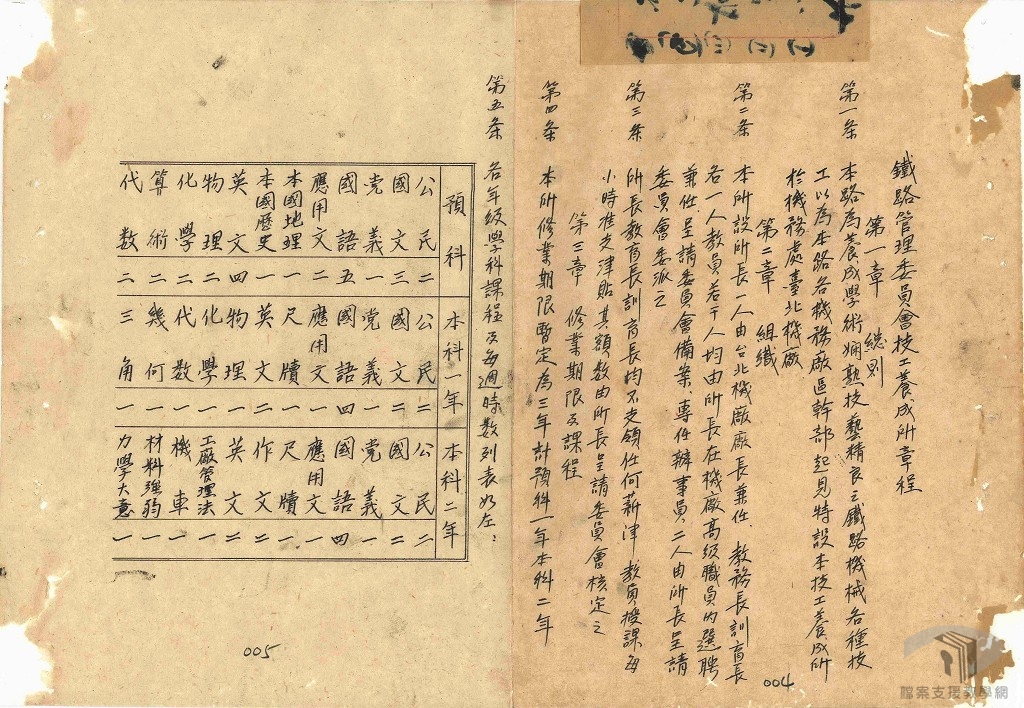 鐵路管理委員會技工養成所章程
第 章 總則
第一条 本路為養成學術嫻熟技藝精良之鐵路機械各種技
工以為本路各機務廠區幹部起見特設本技工養成所
於機務處臺北機廠
第二章 組織
第二条 本所設所長一人由台北機廠廠長兼任、教務長訓育長
各一人教員若干人均由所長在機廠高級職員內選聘
兼任呈請委員會備案、專任辦事員二人由所長呈請
委員會委派之
第三条 所長教育長訓育長均不支領任何薪津 教員授課每
小時准支津貼其額數由所長呈請委員會核定之
第三章 修業期限及課程
第四条 本所修業期限暫定為三年計預科一年本科二年
004
第五条 各年級學科課程及每週時數列表如左：
預科 本科一年 本科二年
公民 二 公民 二 公民 二
國文 三 國文 二 國文 二
党義 一 党義 一 党義 一
國語 五 國語 四 國語 四
應用文 二 應用文 一 應用文 一
本國地理 一 尺牘 一 尺牘 一
本國歷史 一 英文 二 作文 二
英文 四 物理 一 英文 二
物理 二 化學 二 工廠管理法 一
化學 二 代數 一 機車 一
算術 二 幾何 一 材料強弱 二
代數 二 三角 一 力學大意 一
005
檔案支援教學網